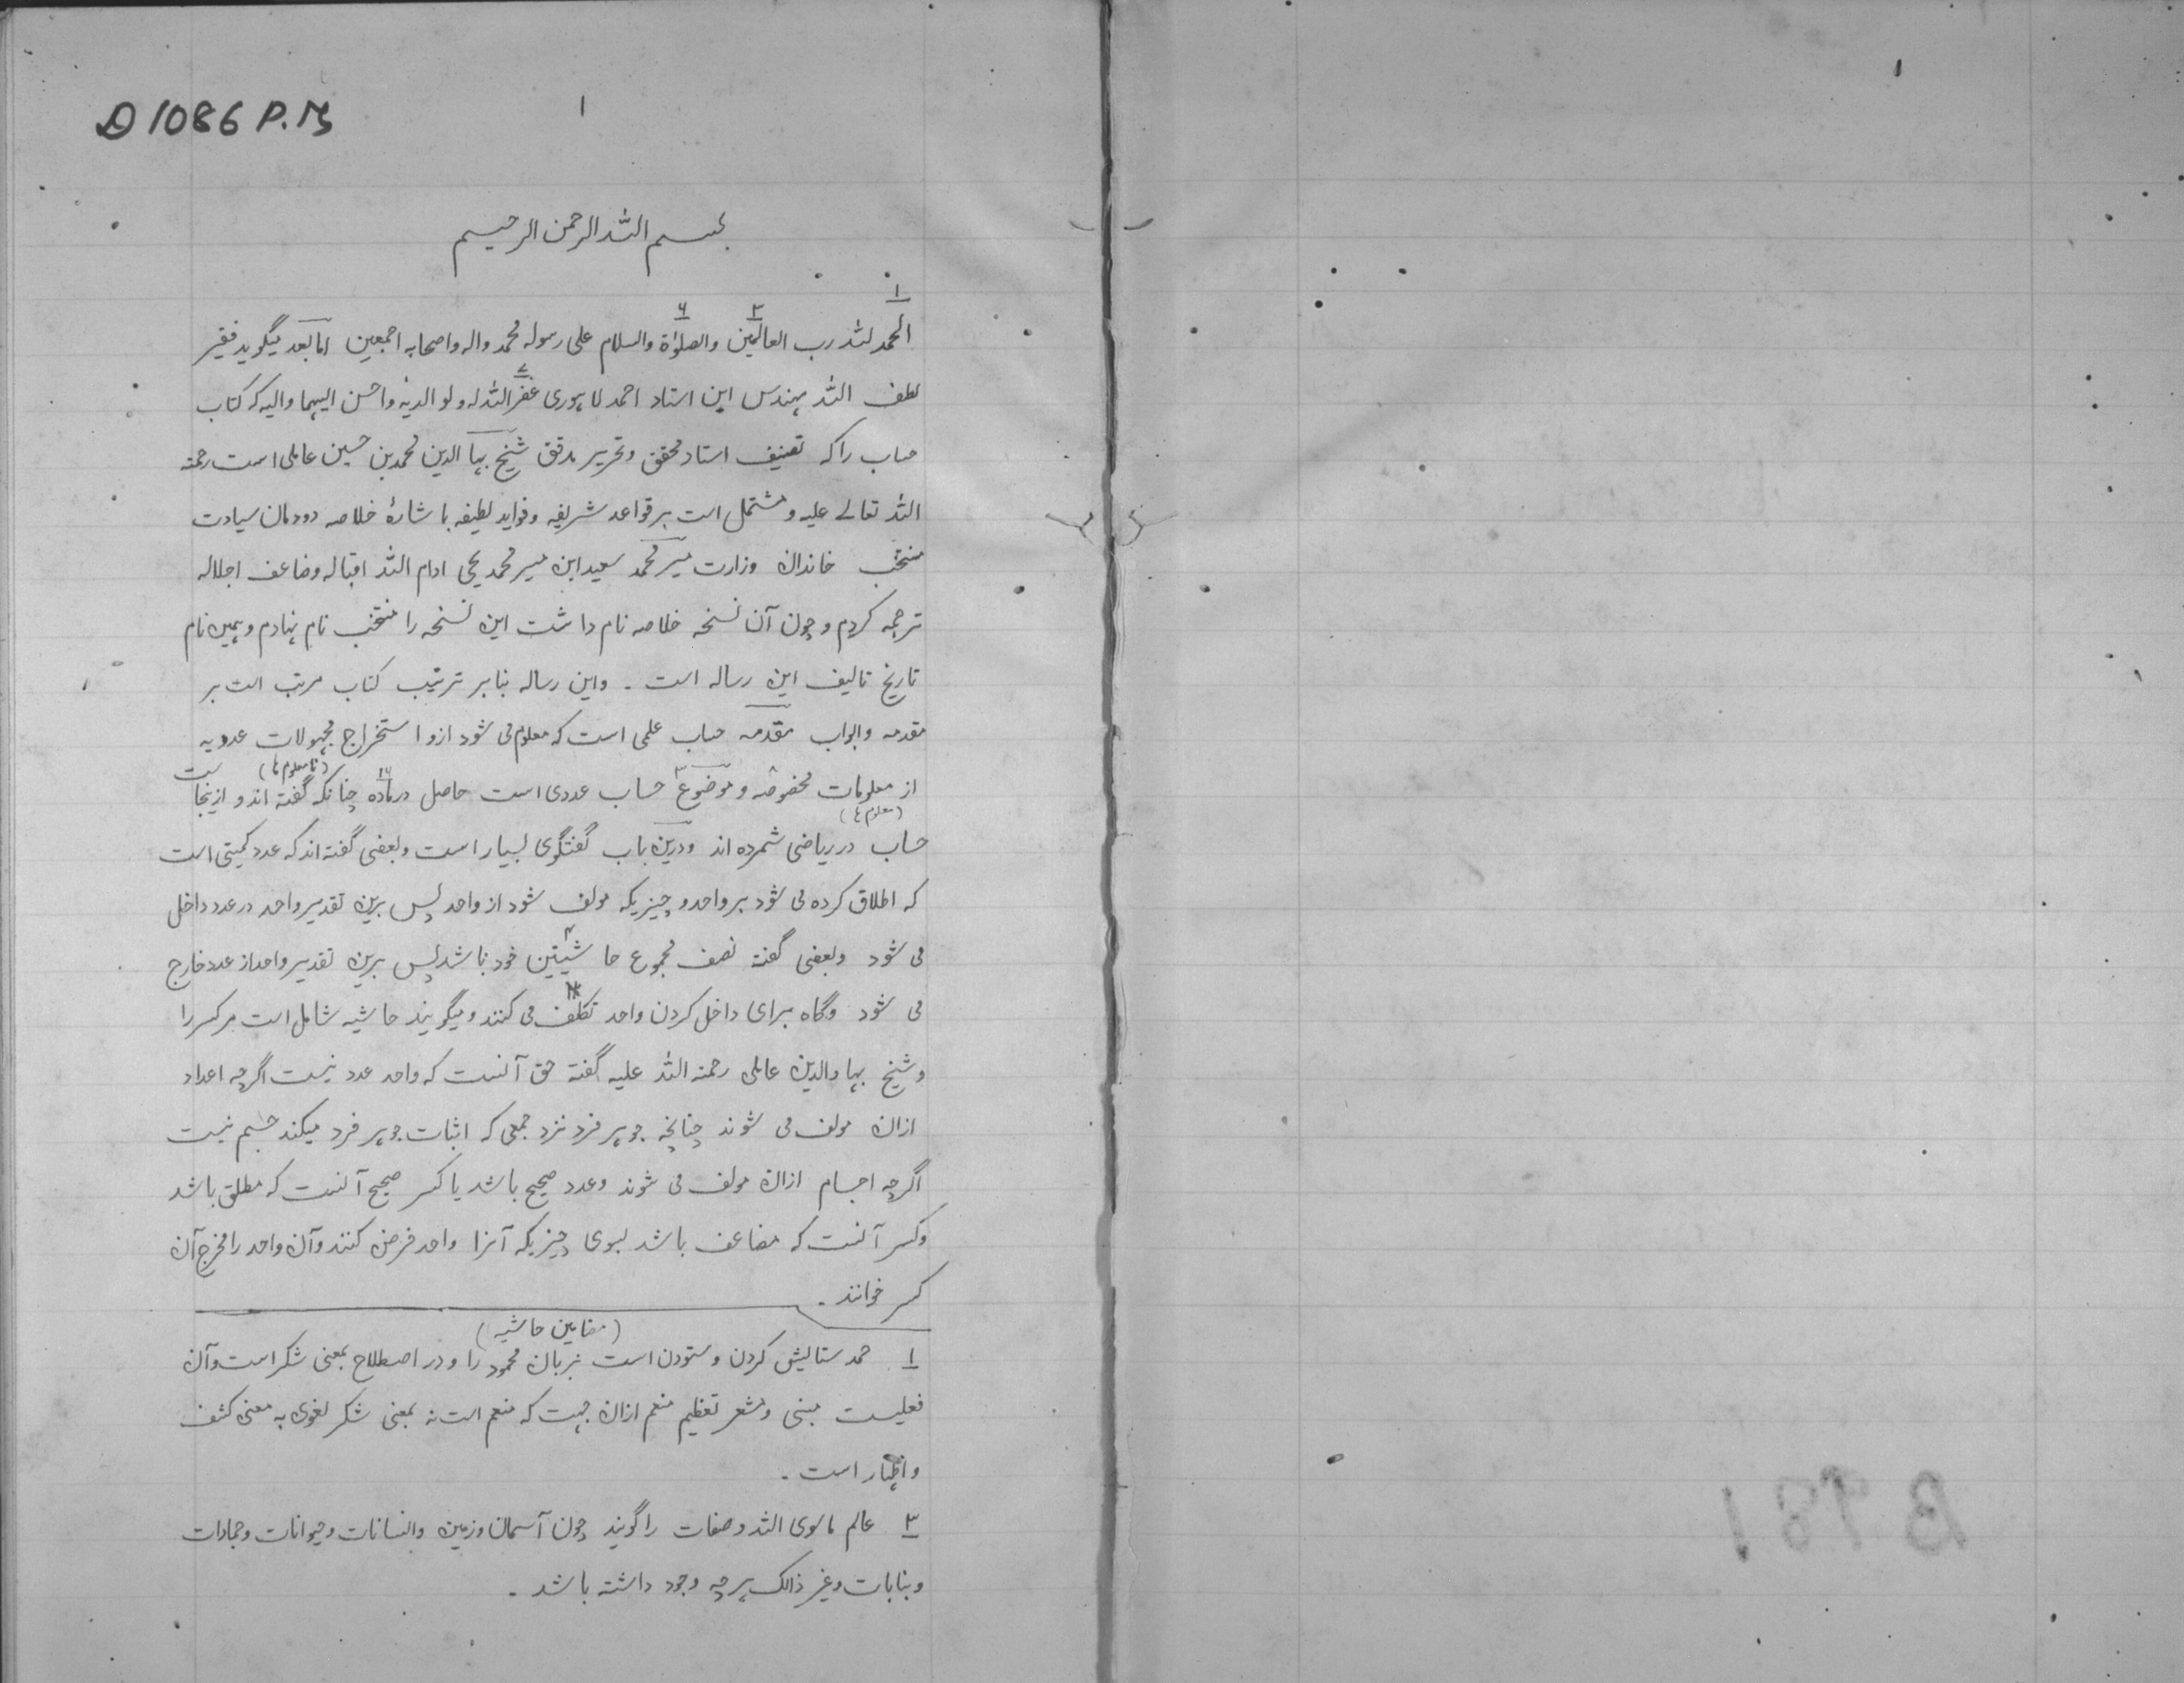 D 1086 P.B
۱
بسم الله الرحمن الرحیم
الحمد لله رب العالمین والصلوٰة والسلام علی رسوله محمد واله واصحابه اجمعین امابعد میگوید فقیر
لطف الله مهندس ابن استاد احمد لاهوری غفر الله له ولوالدیه واحسن الیهما والیه که کتاب
حساب را که تصنیف استاد محقق ونحریر مدقق شیخ بها الدین محمد بن حسین عاملی است رحمة
الله تعالے علیه ومشتمل است بر قواعد شریفه وفواید لطیفه باشارهٔ خلاصه دودمان سیادت
منتخب خاندان وزارت میر محمد سعید ابن میر محمد یحیی ادام الله اقباله وضاعف اجلاله
ترجمه کردم و چون آن نسخه خلاصه نام داشت این نسخه را منتخب نام نهادم وهمین نام
تاریخ تالیف این رساله است ۔ واین رساله بنا بر ترتیب کتاب مرتب است بر
مقدمه وابواب مقدمه حساب علمی است که معلوم می شود ازو استخراج مجهولات عددیه
(نا معلوم ها)
از معلومات مخصوصه وموضوع حساب عددی است حاصل در ماده چنانکه گفته اند و ازینجاست
(معلوم ها)
حساب در ریاضی شمرده اند ودرین باب گفتگوی بسیار است وبعضی گفته اند که عدد کمیتی است
که اطلاق کرده می شود بر واحد و چیزیکه مولف شود از واحد پس برین تقدیر واحد در عدد داخل
می شود وبعضی گفته نصف مجموع حاشیتین خود باشد پس برین تقدیر واحد از عدد خارج
می شود وگاه برای داخل کردن واحد تکلف می کنند ومیگویند حاشیه شامل است مر کسر را
وشیخ بهاوالدین عاملی رحمة الله علیه گفته حق آنست که واحد عدد نیست اگرچه اعداد
ازان مولف می شوند چنانچه جوهر فرد نزد جمعی که اثبات جوهر فرد میکند جسم نیست
اگرچه اجسام ازان مولف می شوند وعدد صحیح باشد یا کسر صحیح آنست که مطلق باشد
وکسر آنست که مضاعف باشد بسوی چیزیکه آنرا واحد فرض کنند وآن واحد را مخرج آن
کسر خوانند ۔
(مضامین حاشیه)
۱ حمد ستالیش کردن وستودن است بزبان محمود را ودر اصطلاح بمعنی شکر است وآن
فعلیست مبنی ومشعر تعظیم منعم ازان جهت که منعم است نه بمعنی شکر لغوی به معنی کشف
واظهار است ۔
۳ عالم ماسوی الله وصفات را گویند چون آسمان وزمین وانسانات وحیوانات وجمادات
ونباتات وغیر ذالک هرچه وجود داشته باشد ۔
۱